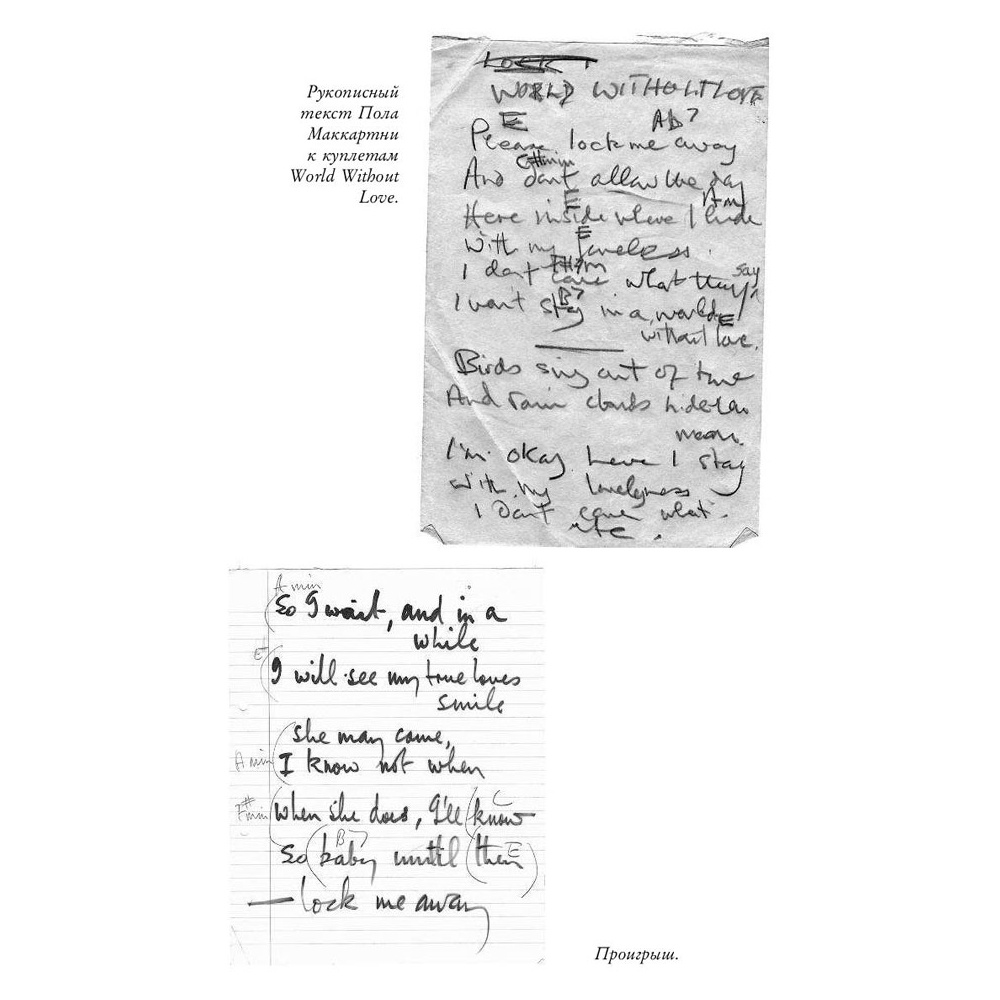 Рукописный
текст Пола
Маккартни
к куплетам
World Without
Love.
WORLD WITHOUT LOVE
E Ab7
Please lock me away
G#min
And don't allow the day
E Am
Here inside where I hide
E
With my loneliness.
F#m say
I don't care what they
B7
I won't stay in a world
E
without love.
Birds sing out of tune
And rain clouds hide the
moon.
I'm okay here I stay
with my lonelyness
I Don't care what
etc.
A min
So I wait, and in a
while
E
I will see my true loves
smile
she may come,
A min I know not when
F#min when she does, I'll know
C
B7 E
so baby until then
— lock me away
Проигрыш.